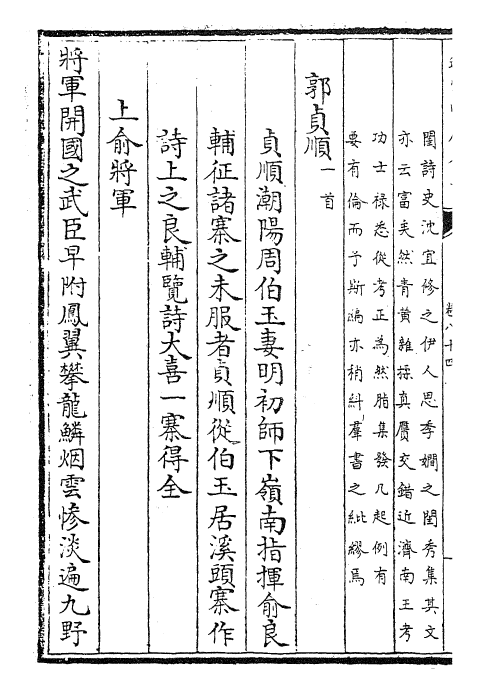 閨詩史沈宜修之伊人思季嫻之閨秀集其文
亦云富矣然青黄雜揉真贋交錯近濟南王考
功士禄悉從考正為然脂集發凡起例有
要有倫而予斯編亦稍糾羣書之紕繆焉
郭貞順一首
貞順潮陽周伯玉妻明初師下嶺南指揮俞良
輔征諸寨之未服者貞順從伯玉居溪頭寨作
詩上之良輔覽詩大喜一寨得全
上俞將軍
將軍開國之武臣早附鳳翼攀龍鱗烟雲慘淡遍九野
卷八十四